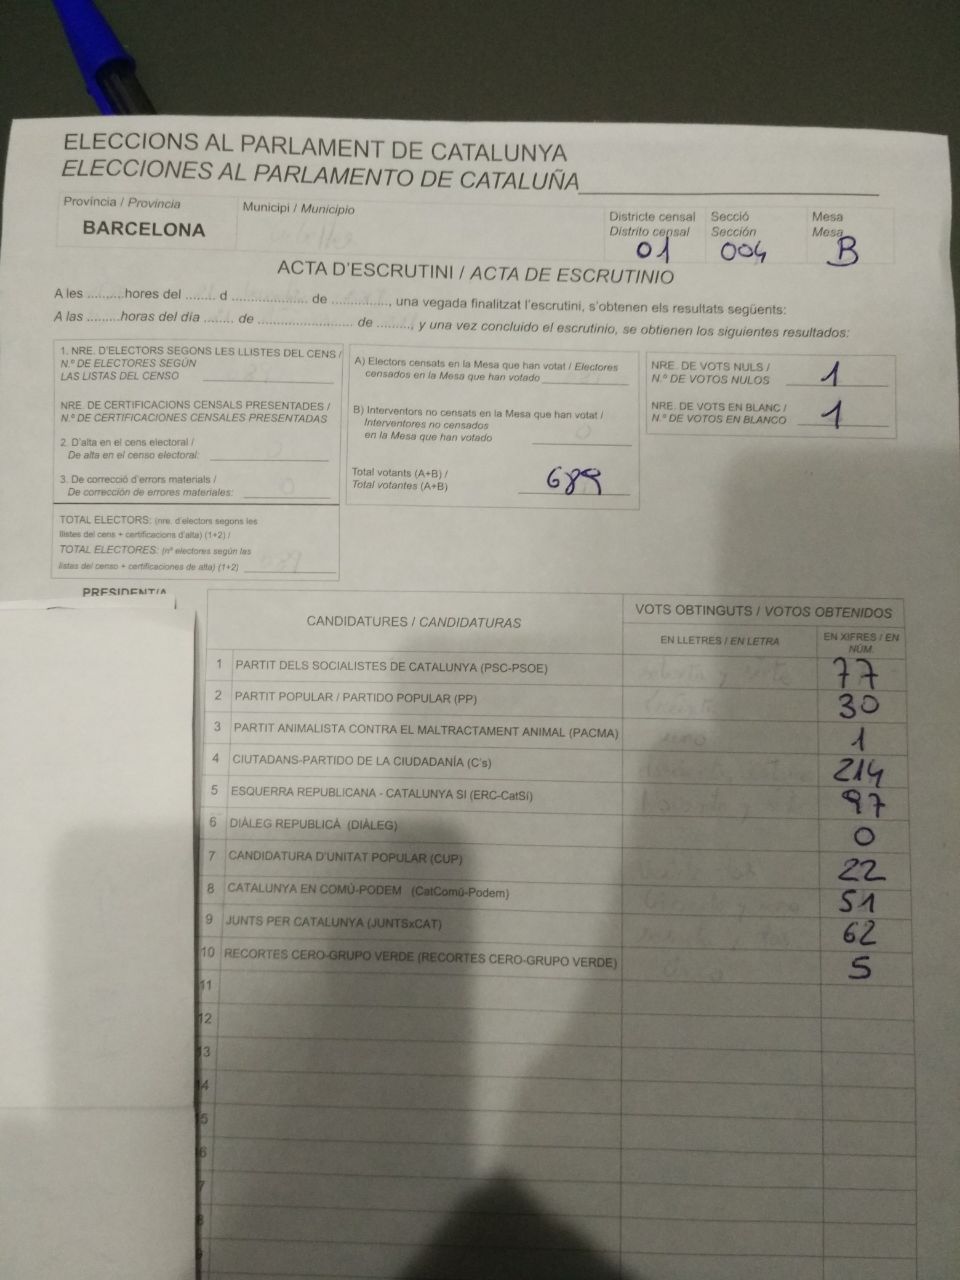 ELECCIONS AL PARLAMENT DE CATALUNYA
ELECCIONES AL PARLAMENTO DE CATALUÑA
Província / Provincia
BARCELONA
Municipi / Municipio
Districte censal
Distrito censal
01
Secció
Sección
004
Mesa
Mesa
B
ACTA D'ESCRUTINI / ACTA DE ESCRUTINIO
A les .........hores del ........ d .................... de ..............., una vegada finalitzat l'escrutini, s'obtenen els resultats següents:
A las .........horas del día ........ de ......................... de .........., y una vez concluido el escrutinio, se obtienen los siguientes resultados:
1. NRE. D'ELECTORS SEGONS LES LLISTES DEL CENS /
N.º DE ELECTORES SEGÚN
LAS LISTAS DEL CENSO
NRE. DE CERTIFICACIONS CENSALS PRESENTADES /
N.º DE CERTIFICACIONES CENSALES PRESENTADAS
2. D'alta en el cens electoral /
De alta en el censo electoral:
3. De correcció d'errors materials /
De corrección de errores materiales:
TOTAL ELECTORS: (nre. d'electors segons les
llistes del cens + certificacions d'alta) (1+2) /
TOTAL ELECTORES: (nº electores según las
listas del censo + certificaciones de alta) (1+2)
A) Electors censats en la Mesa que han votat / Electores
censados en la Mesa que han votado
B) Interventors no censats en la Mesa que han votat /
Interventores no censados
en la Mesa que han votado
Total votants (A+B) /
Total votantes (A+B)
689
NRE. DE VOTS NULS /
N.º DE VOTOS NULOS
1
NRE. DE VOTS EN BLANC /
N.º DE VOTOS EN BLANCO
1
PRESIDENT/A
CANDIDATURES / CANDIDATURAS
VOTS OBTINGUTS / VOTOS OBTENIDOS
EN LLETRES / EN LETRA
EN XIFRES / EN
NÚM.
1 PARTIT DELS SOCIALISTES DE CATALUNYA (PSC-PSOE) 77
2 PARTIT POPULAR / PARTIDO POPULAR (PP) 30
3 PARTIT ANIMALISTA CONTRA EL MALTRACTAMENT ANIMAL (PACMA) 1
4 CIUTADANS-PARTIDO DE LA CIUDADANÍA (C's) 214
5 ESQUERRA REPUBLICANA - CATALUNYA SI (ERC-CatSí) 97
6 DIÀLEG REPUBLICÀ (DIÀLEG) 0
7 CANDIDATURA D'UNITAT POPULAR (CUP) 22
8 CATALUNYA EN COMÚ-PODEM (CatComú-Podem) 51
9 JUNTS PER CATALUNYA (JUNTSxCAT) 62
10 RECORTES CERO-GRUPO VERDE (RECORTES CERO-GRUPO VERDE) 5
11
12
13
14
5
6
7
8
9